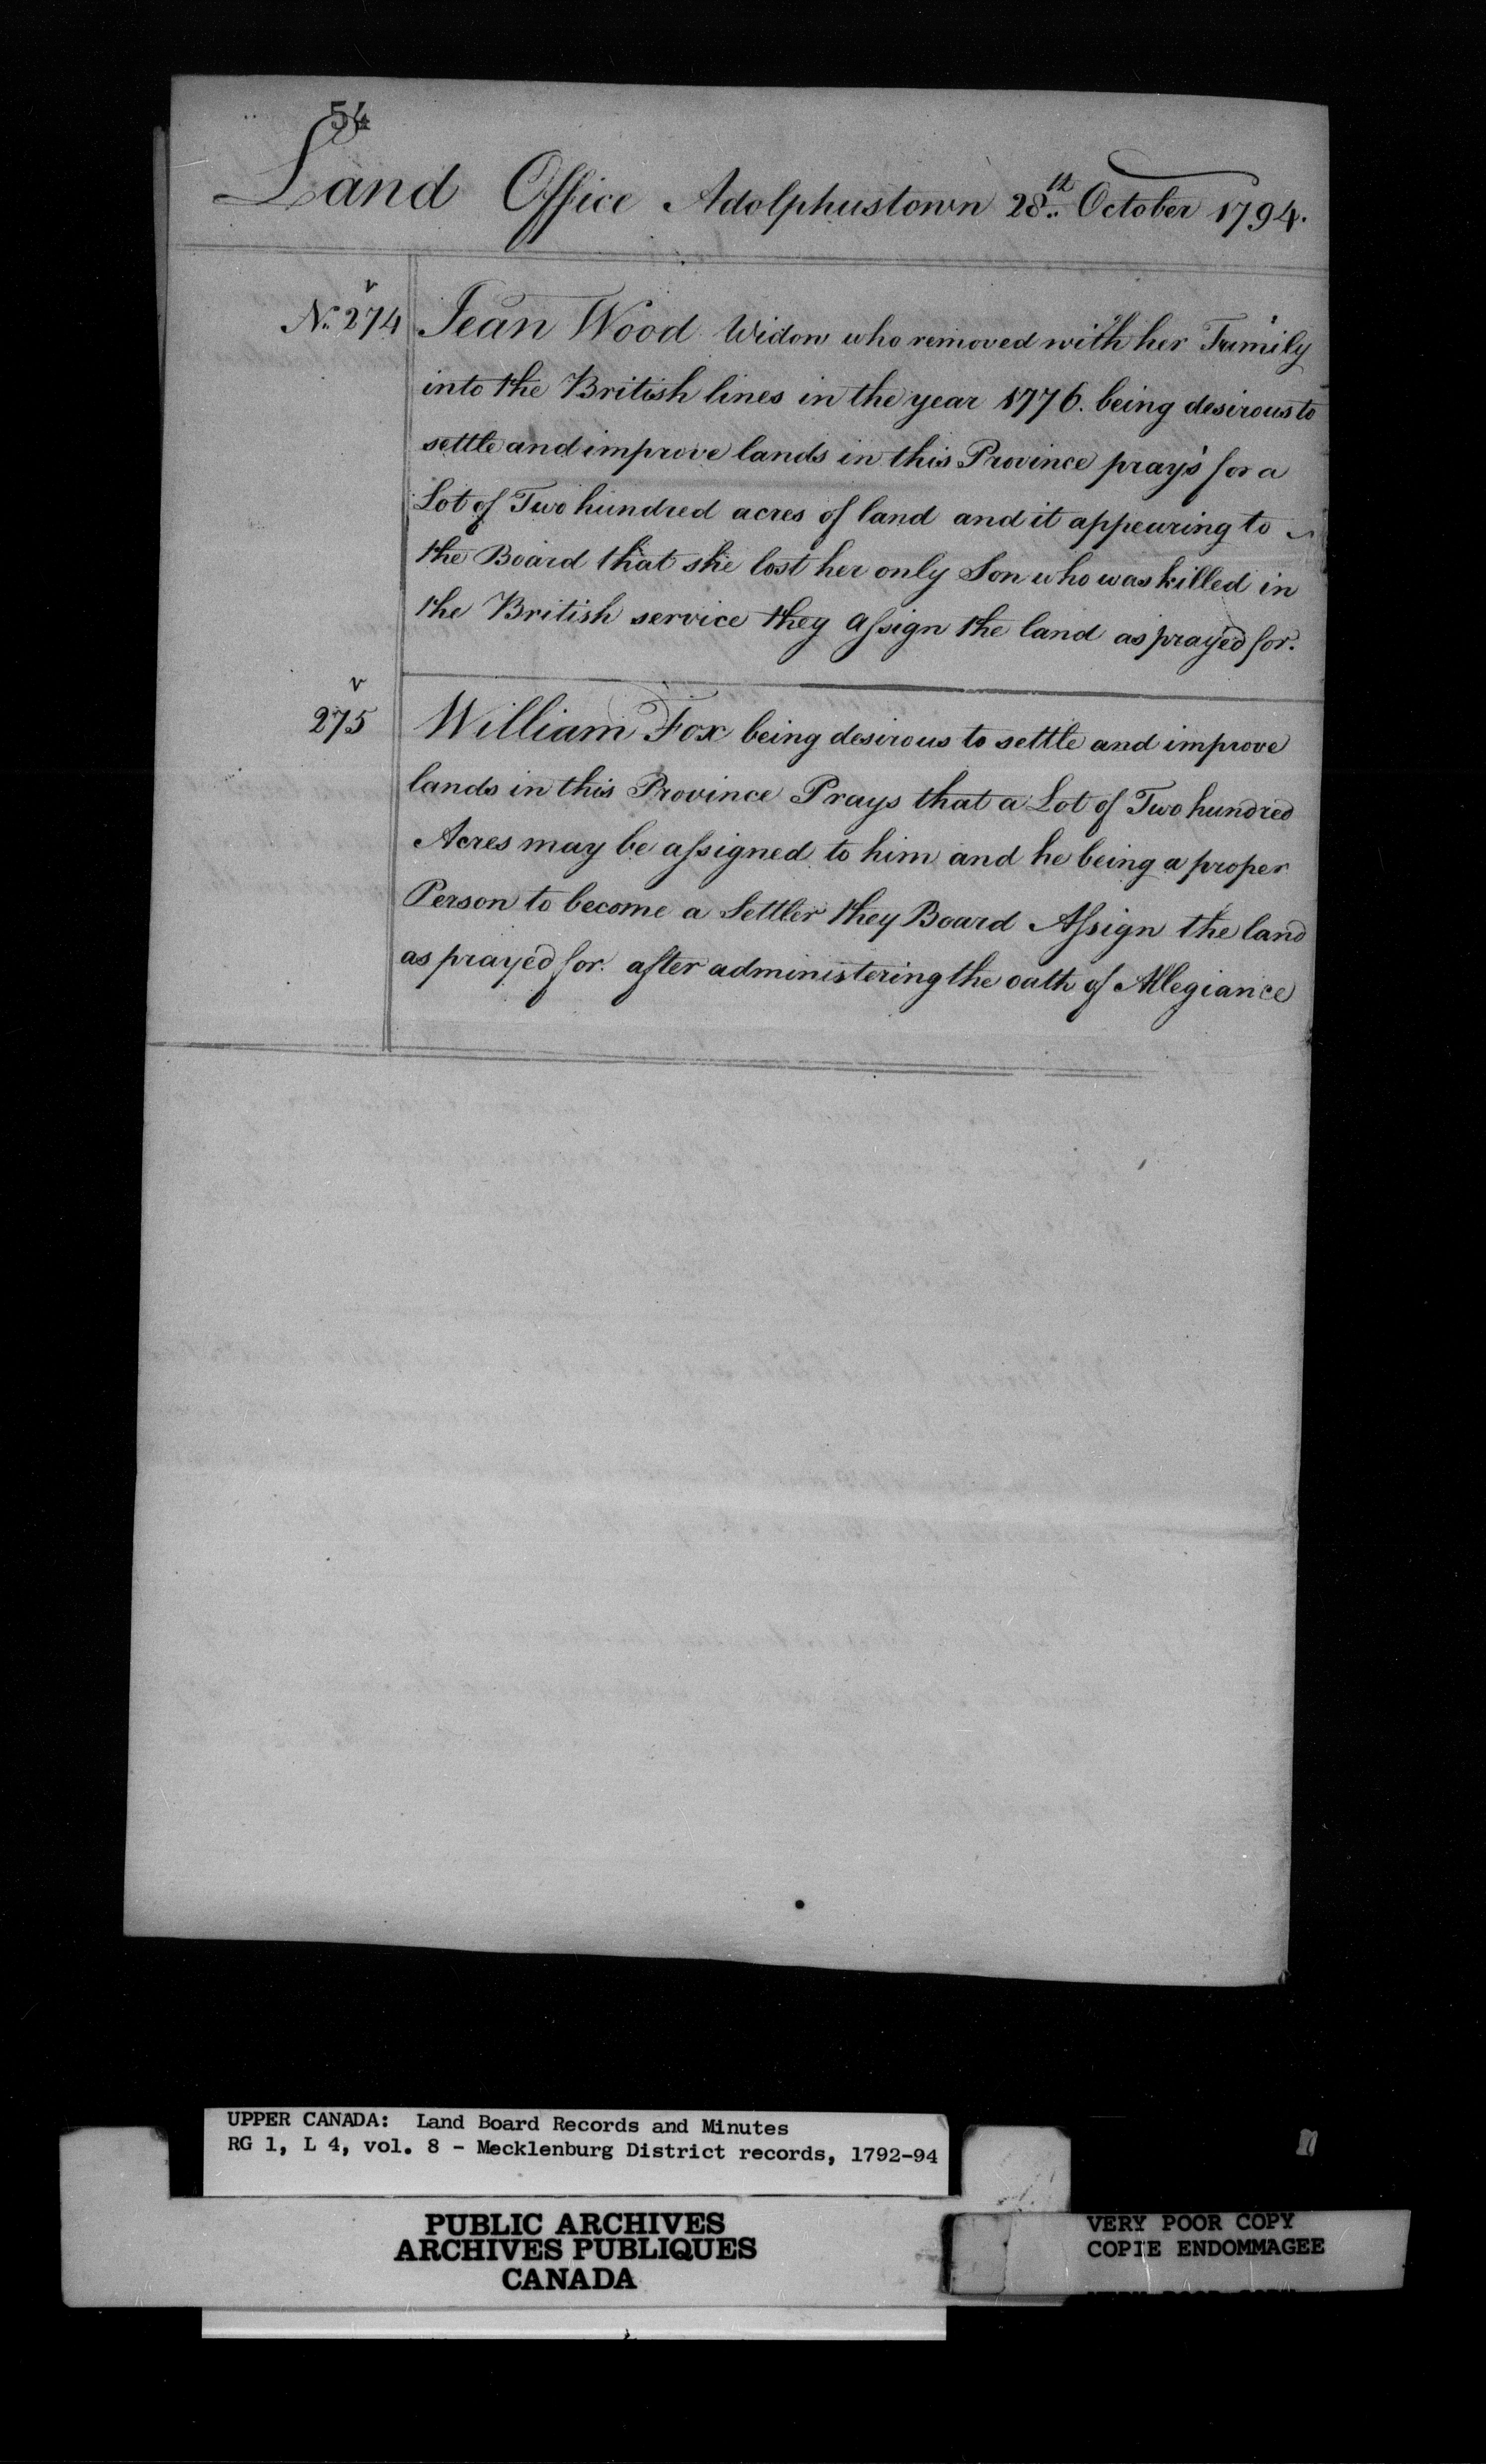 54
Land Office Adolphustown 28th October 1794.
No. 274 Jean Wood Widow who removed with her Family
into the British lines in the year 1776. being desirous to
settle and improve lands in this Province pray's for a
Lot of Two hundred acres of land and it appearing to
the Board that she lost her only Son who was killed in
the British service they assign the land as prayed for.
275 William Fox being desirous to settle and improve
lands in this Province Prays that a Lot of Two hundred
Acres may be assigned to him and he being a proper
Person to become a Settler they Board Assign the land
as prayed for. after administering the oath of Allegiance
UPPER CANADA: Land Board Records and Minutes
RG 1, L 4, vol. 8 - Mecklenburg District records, 1792-94
PUBLIC ARCHIVES
ARCHIVES PUBLIQUES
CANADA
VERY POOR COPY
COPIE ENDOMMAGEE